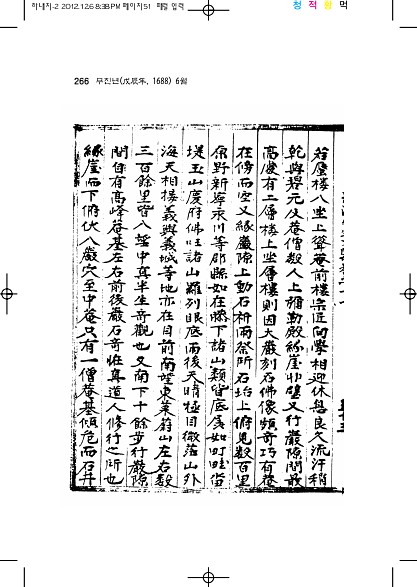 2012.12.6 8:38 PM 페이지51
청 적 황 먹
266 무진년(戊辰年, 1688) 6월
若屋樓八坐上聳菴前樓宗匠向學相迎休息良久流汗稍
乾與碧元及菴僧數人上彌勒殿緣崖 又行巖隙間最
高處有二層樓上坐層樓則因大巖刻石佛像頗奇巧有菴
在傍而空又緣巖隙上動石祈雨祭所石坮上俯見數百里
原野新寧永川等郡縣如在膝下諸山類皆底處如町畦皆
堤玉山慶府佛 諸山羅列眼底雨後天晴極目微茫山外
海天相接義興義城等地亦在目前南望東萊蔚山左右數
三百餘里皆入望中真半生奇觀也又南下十餘步行巖隙
間俱有高峰菴基左右前後巖石奇壯真道人修行之所也
緣崖而下俯伏入巖穴至中菴只有一僧菴基傾危而石井